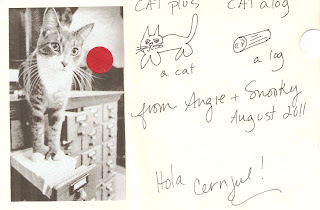 CAT plus CAT alog
a cat a log
from Angie + Snooky
August 2011
Hola